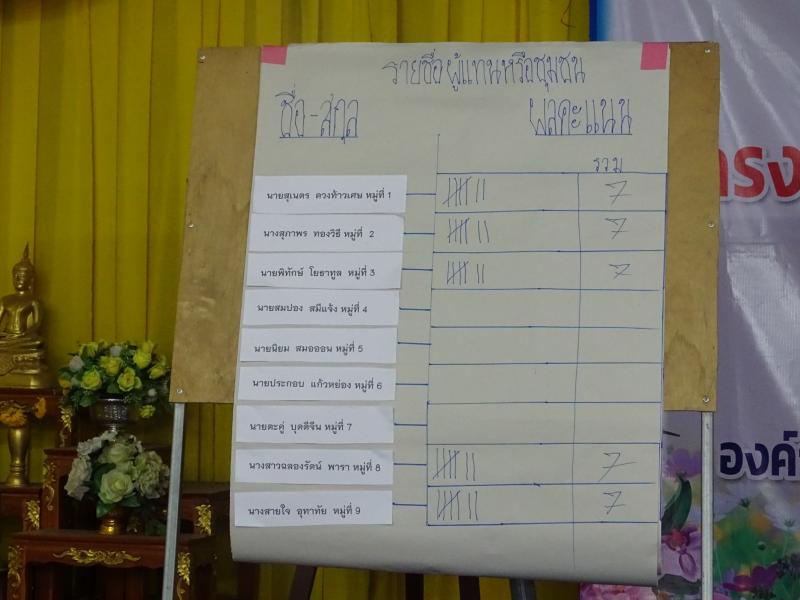 รายชื่อผู้แทนหรือชุมชน
ชื่อ-สกุล ผลคะแนน
รวม
นายสุเนตร ดวงท้าวเศษ หมู่ที่ 1 7
นางสุภาพร ทองวิธี หมู่ที่ 2 7
นายพิทักษ์ โยธาทูล หมู่ที่ 3 7
นายสมปอง สมีแจ้ง หมู่ที่ 4
นายนิยม สมอออน หมู่ที่ 5
นายประกอบ แก้วหย่อง หมู่ที่ 6
นายตะคู่ บุดดีจีน หมู่ที่ 7
นางสาวฉลองรัตน์ พารา หมู่ที่ 8 7
นางสายใจ อุทาทัย หมู่ที่ 9 7
องค์